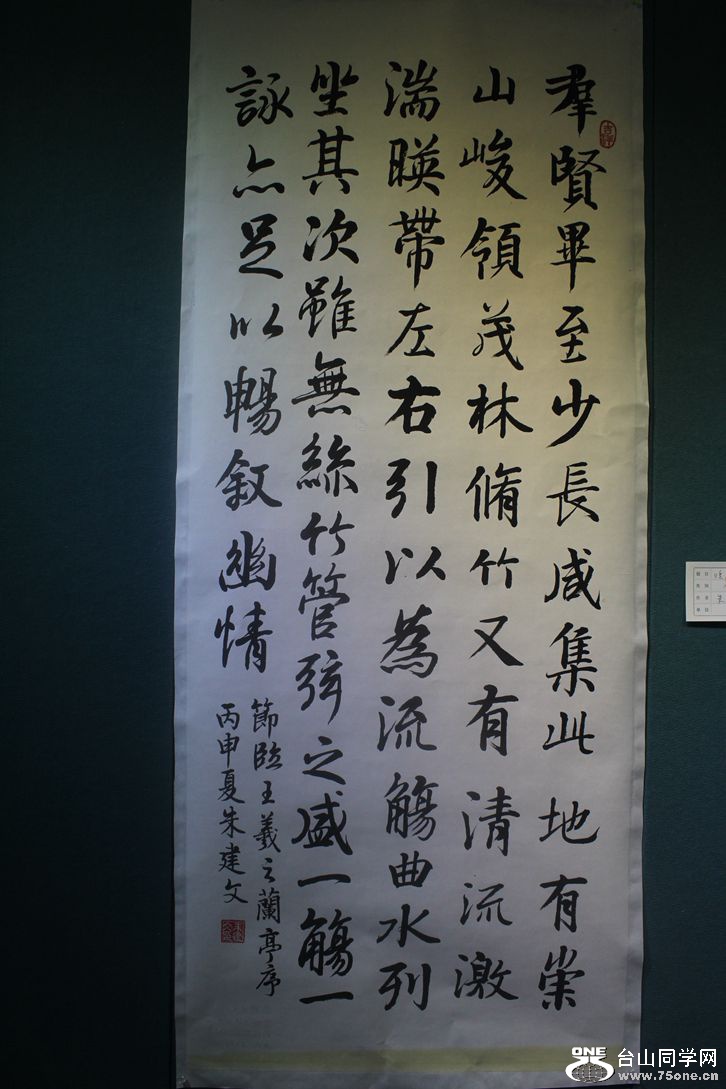 羣賢畢至少長咸集此地有崇
山峻領茂林脩竹又有清流激
湍暎帶左右引以為流觴曲水列
坐其次雖無絲竹管弦之盛一觴一
詠亦足以暢叙幽情
節臨王羲之蘭亭序
丙申夏朱建文
ONE
台山同学网
www.75one.cn